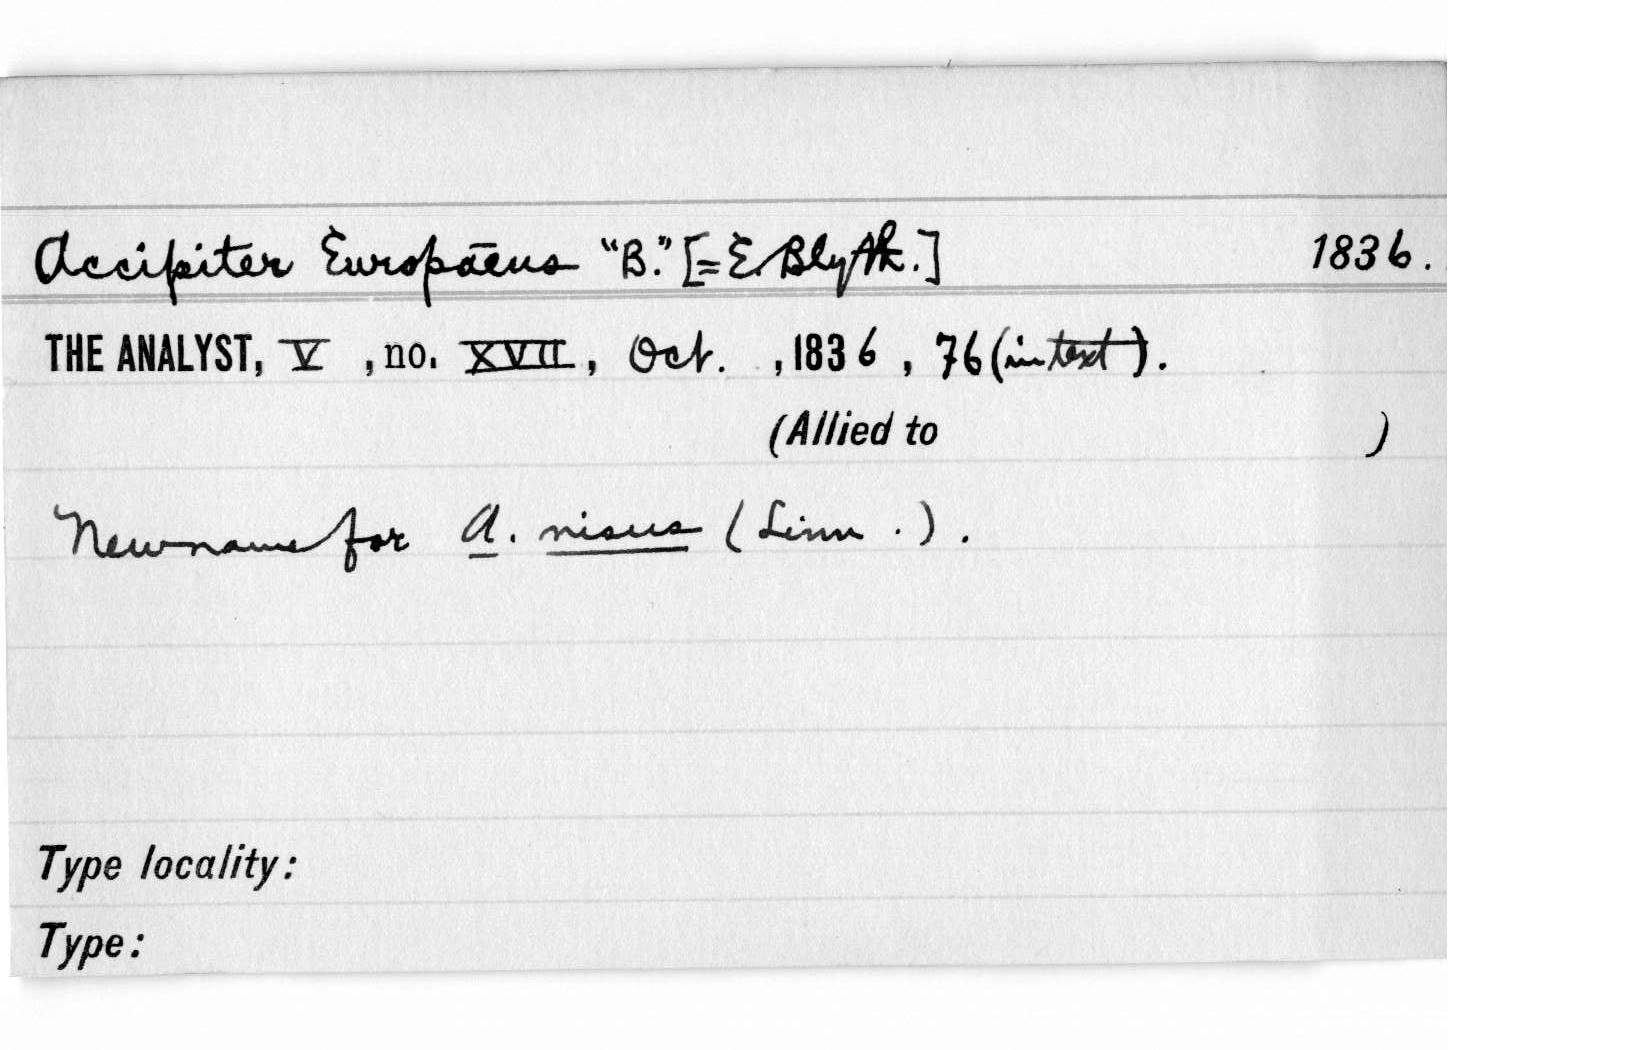 Accipiter Europāeus "B." [= E. Blyth.] 1836.
THE ANALYST, V , no. XVII, Oct. , 1836 , 76 (in text).
(Allied to )
New name for A. nisus (Linn .) .
Type locality:
Type: